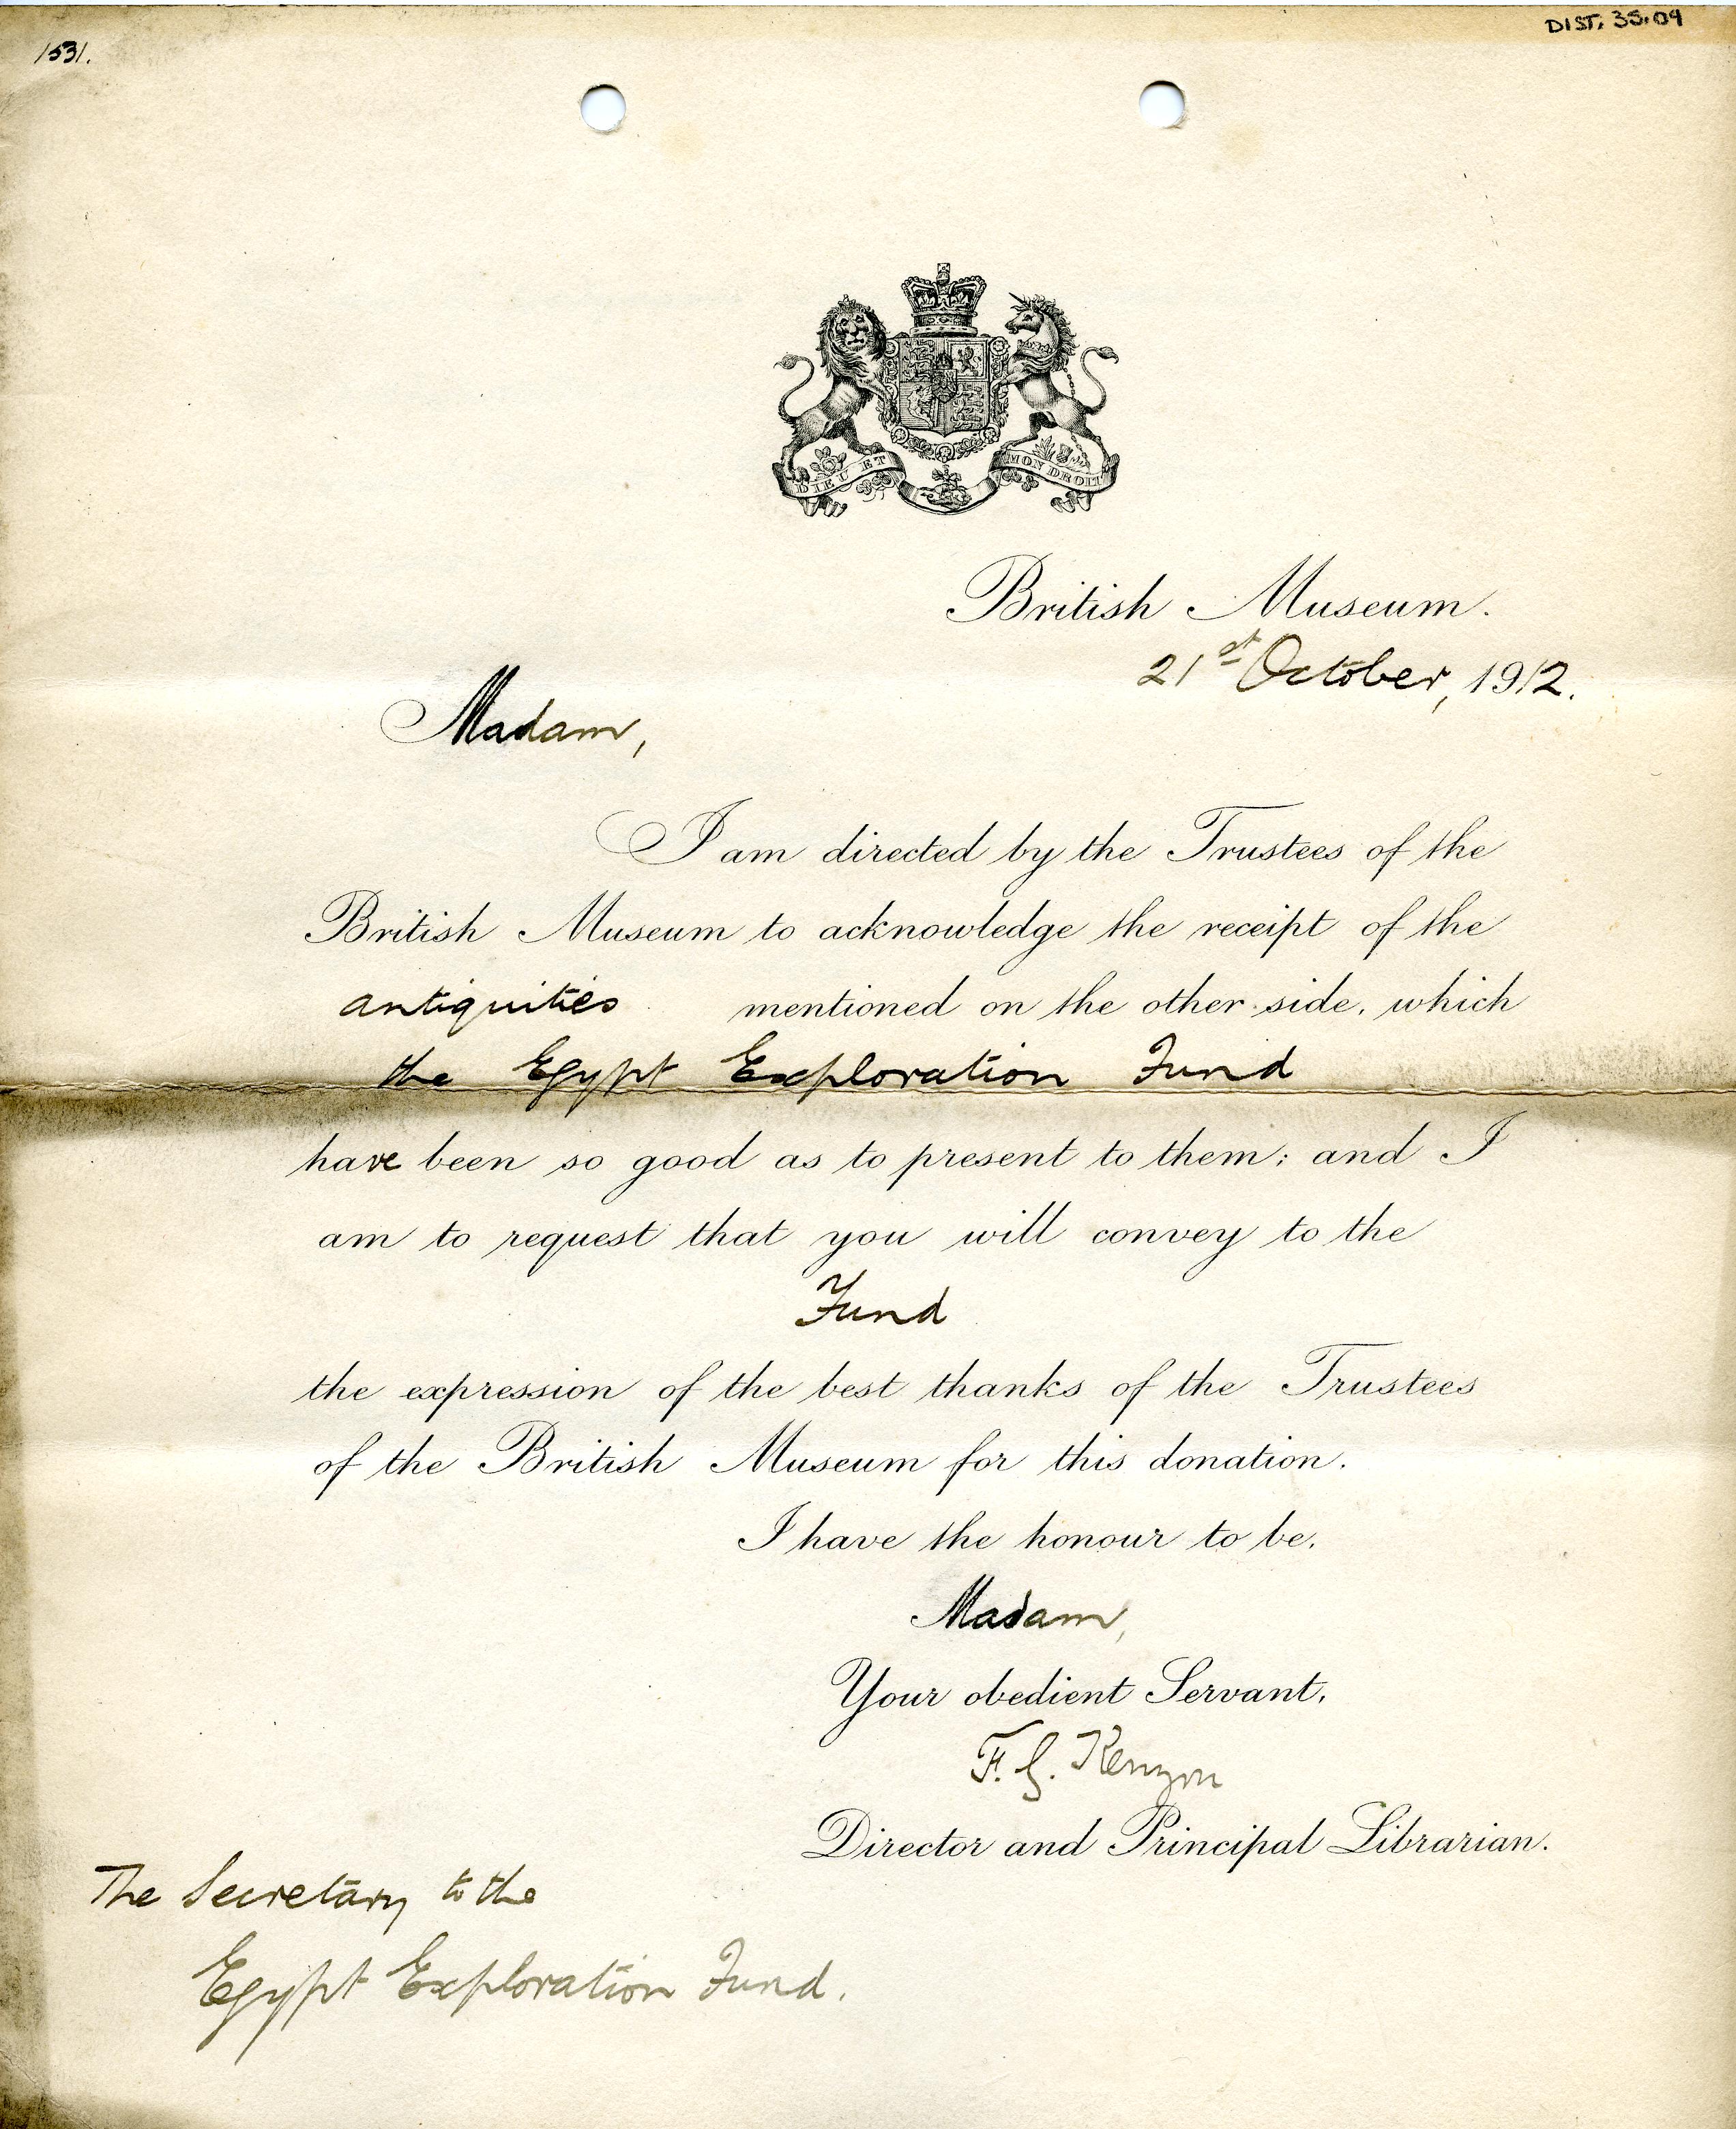 1531.
DIST. 35.09
DIEU ET MON DROIT
British Museum.
21st October, 1912.
Madam,
I am directed by the Trustees of the
British Museum to acknowledge the receipt of the
antiquities mentioned on the other side, which
the Egypt Exploration Fund
have been so good as to present to them; and I
am to request that you will convey to the
Fund
the expression of the best thanks of the Trustees
of the British Museum for this donation.
I have the honour to be,
Madam,
Your obedient Servant,
F. G. Kenyon
Director and Principal Librarian.
The Secretary to the
Egypt Exploration Fund.